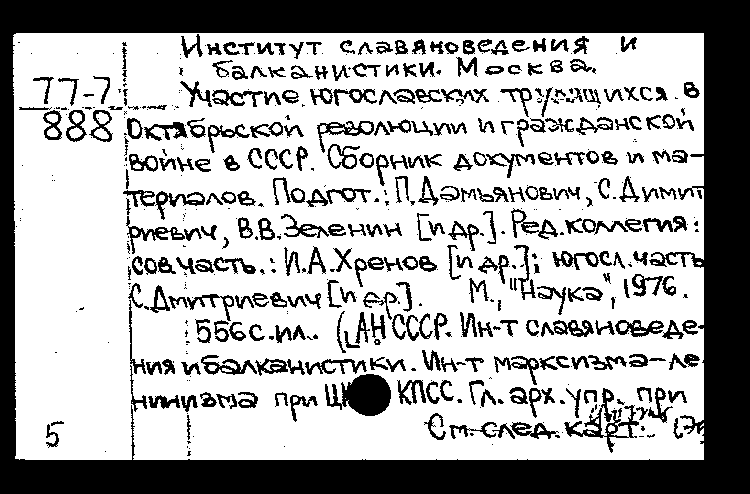 Институт славяноведения и
балканистики. Москва.
77-7
888
Участие югославских трудящихся в
Октябрьской революции и гражданской
войне в СССР. Сборник документов и ма-
териалов. Подгот.: П. Дамьянович, С. Димит
риевич, В.В. Зеленин [и др.]. Ред. коллегия:
сов. часть.: И.А. Хренов [и др.]; югосл. часть
С. Дмитриевич [и др.]. М., "Наука", 1976.
556 с. ил.. (АН СССР. Ин-т славяноведе-
ния и балканистики. Ин-т марксизма-ле
нинизма при ЦК КПСС. Гл. арх. упр. при
См. след. карт.
5